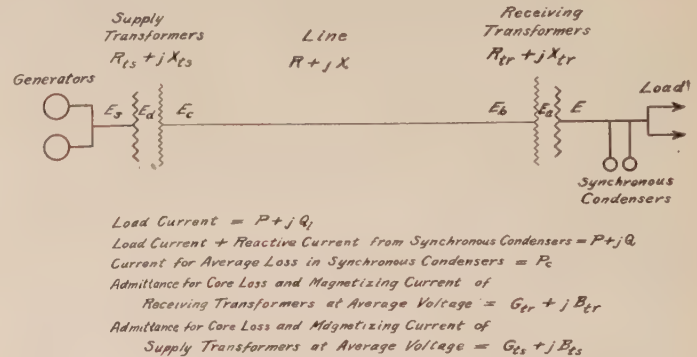 Supply
Transformers
R_ts + j X_ts
Line
R + j X
Receiving
Transformers
R_tr + j X_tr
Generators
E_s
E_d
E_c
E_b
E_a
E
Load
Synchronous
Condensers
Load Current = P + j Q_l
Load Current + Reactive Current from Synchronous Condensers = P + j Q
Current for Average Loss in Synchronous Condensers = P_c
Admittance for Core Loss and Magnetizing Current of
Receiving Transformers at Average Voltage = G_tr + j B_tr
Admittance for Core Loss and Magnetizing Current of
Supply Transformers at Average Voltage = G_ts + j B_ts